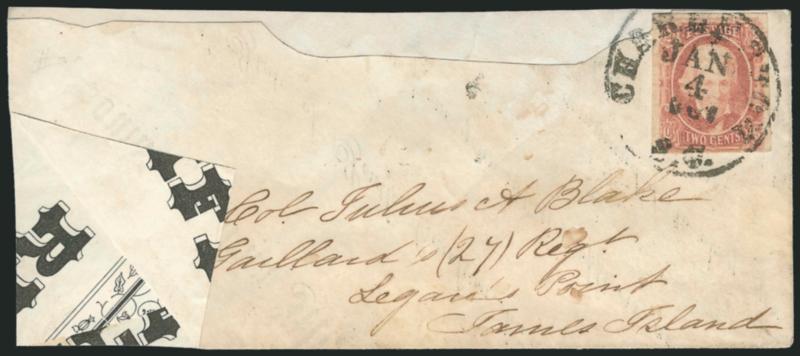 CHARLESTON
JAN
4
S.C.
TWO CENTS
Col. Julius A Blake
Gaillard's (27) Regt.
Legare's Point
James Island